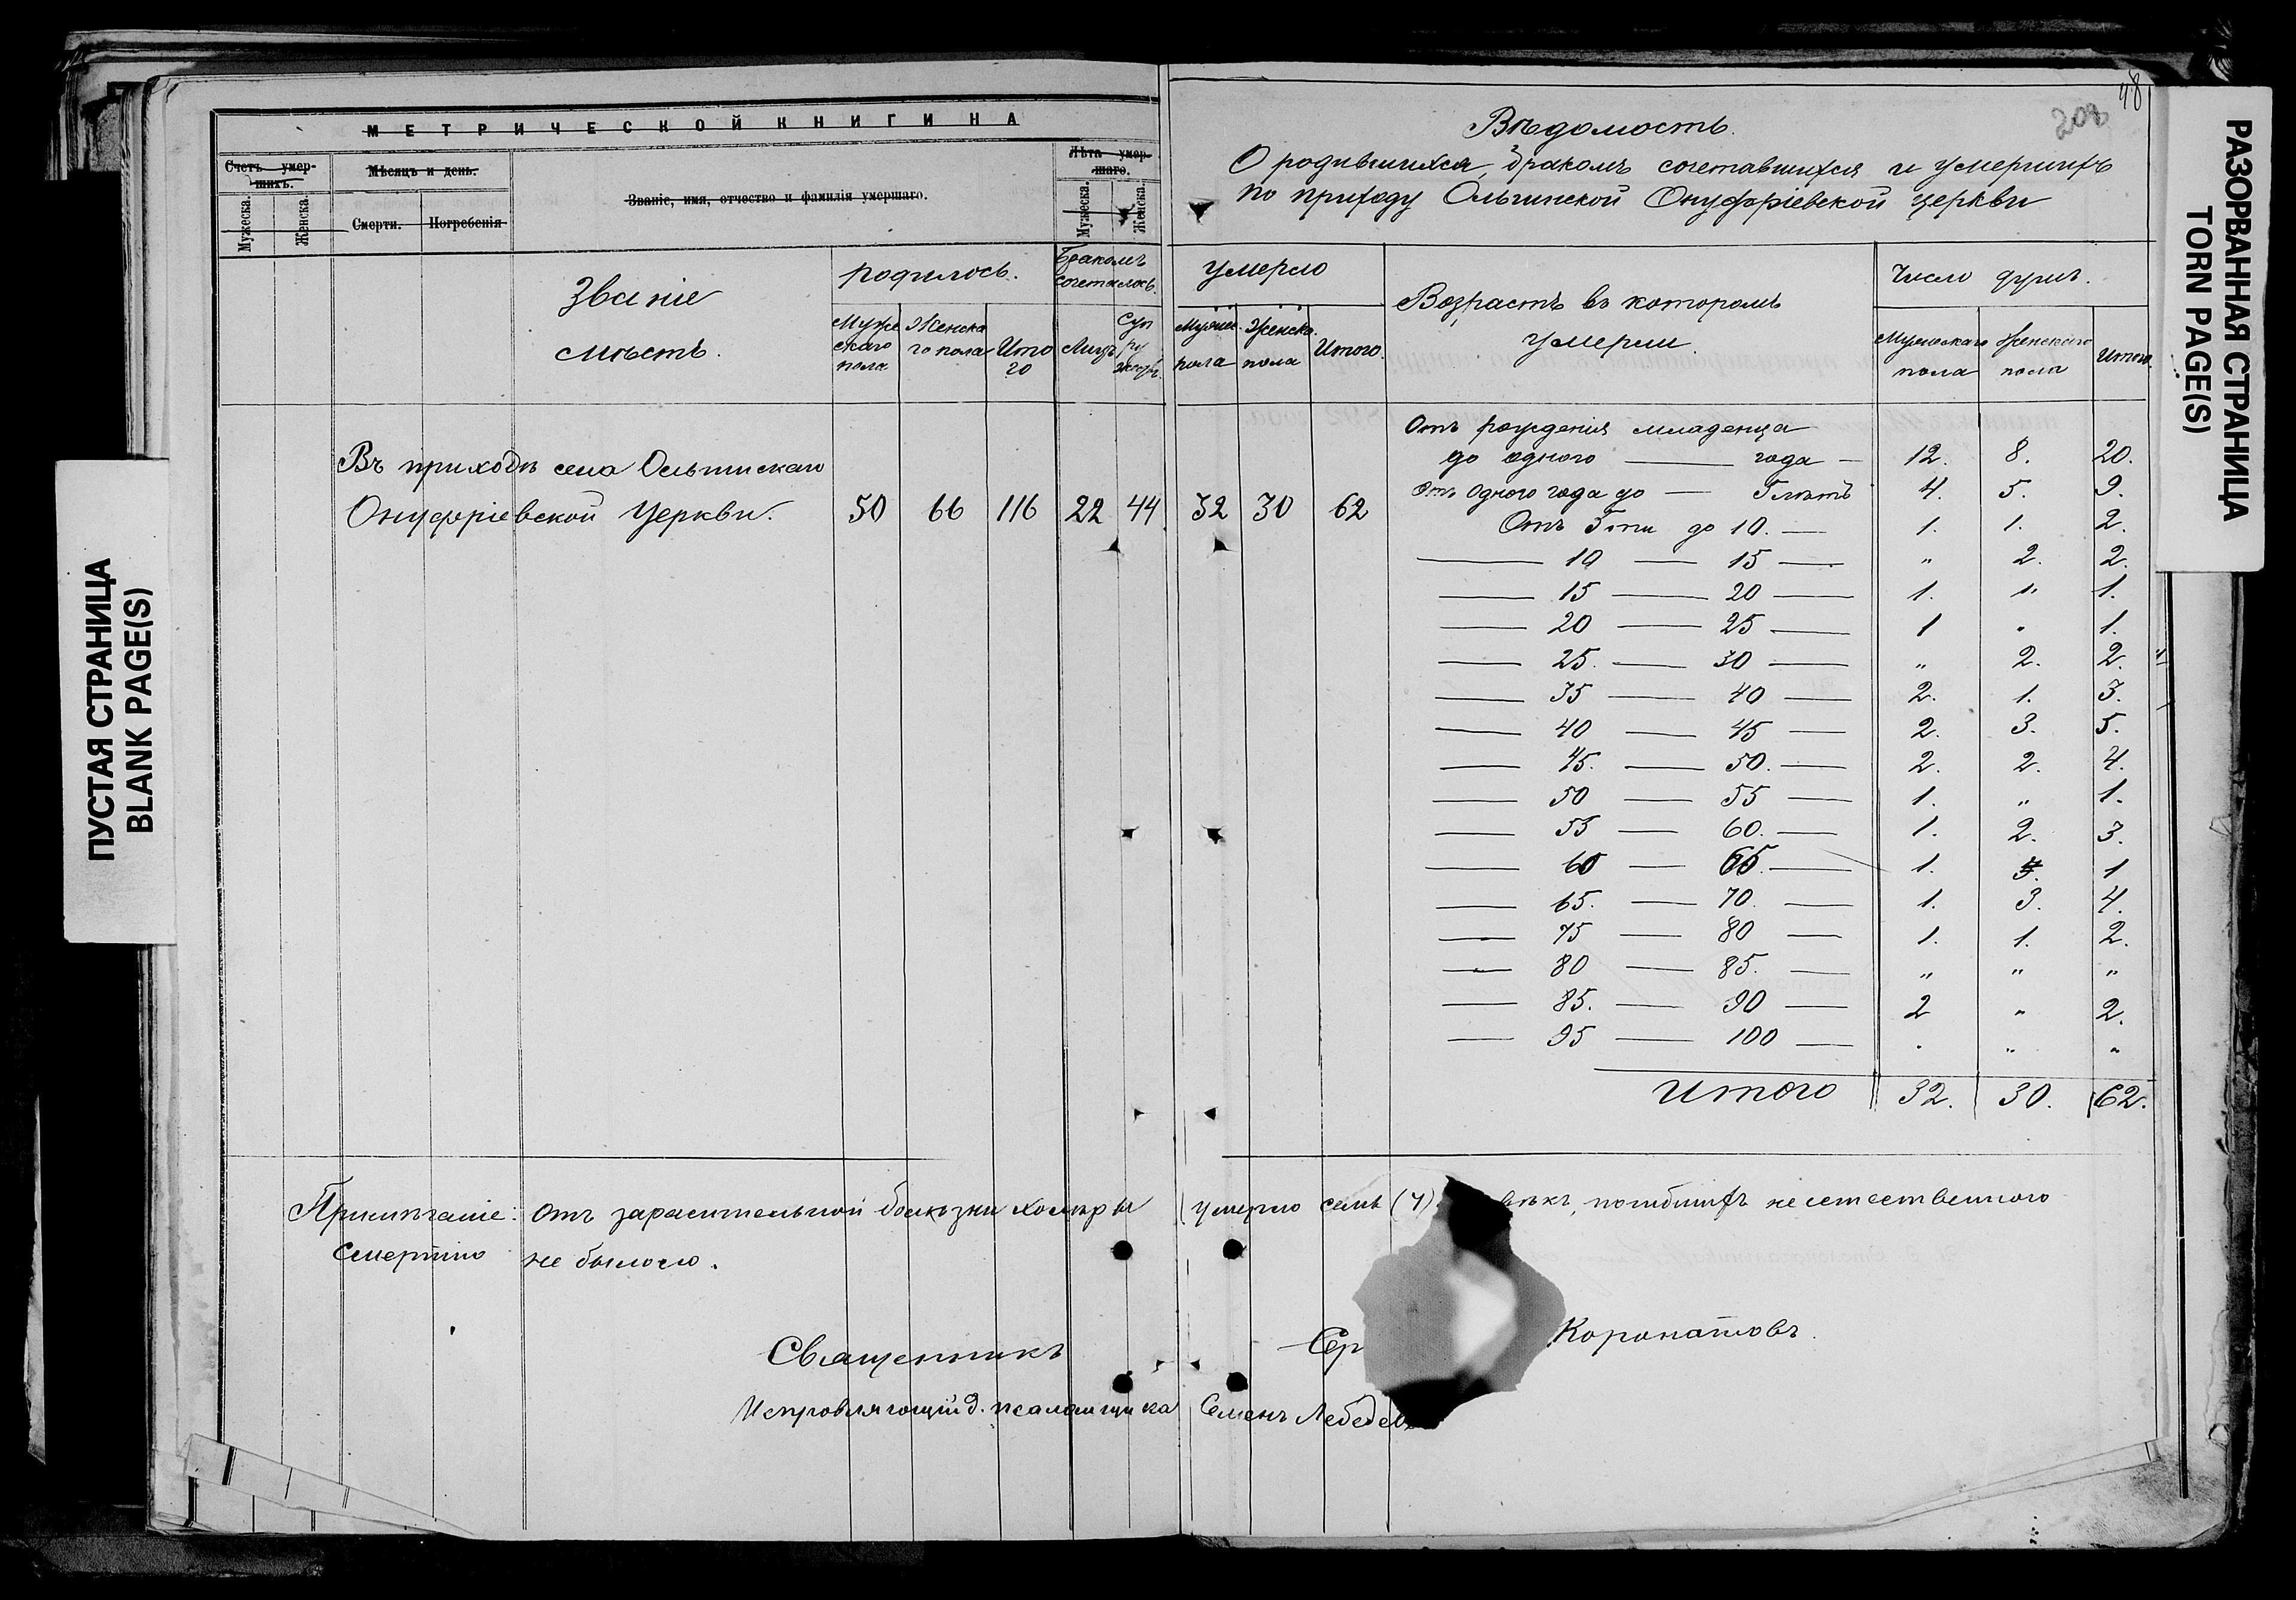 МЕТРИЧЕСКОЙ КНИГИ НА
Счетъ умер-
шихъ.
Мѣсяцъ и день.
Званіе, имя, отчество и фамилія умершаго.
Лѣта умер-
шаго.
Мужеска.
Женска.
Смерти.
Погребенія
Мужеска.
Женска.
Званіе
мѣстъ.
родилось.
Бракомъ
сочеталось.
Муже
скаго
пола
Женска
го пола
Ито
го
Лицъ
Суп
ру
жествъ
Въ приходѣ села Ольгинскаго
Онуфріевской Церкви. 50 66 116 22 44
Примѣчаніе: Отъ заразительной болѣзни холеры
смертію не было.
Священникъ
Исправляющій д. псаломщика
48
208
Вѣдомость.
О родившихся, бракомъ сочетавшихся и умершихъ
по приходу Ольгинской Онуфріевской церкви
умерло
Возрастъ въ которомъ
умерли
Число душъ.
Мужес.
пола
Женска.
пола
Итого.
Мужескаго
пола
Женскаго
пола
Итого.
32 30 62
Отъ рожденія младенца
до одного — года — 12. 8. 20.
Отъ одного года до — 5 лѣтъ 4. 5. 9.
Отъ 5ти до 10. — 1. 1. 2.
— 10 — 15 — „ 2. 2.
— 15 — 20 — 1. „ 1.
— 20 — 25 — 1 „ 1.
— 25. — 30 — „ 2. 2.
— 35 — 40 — 2. 1. 3.
— 40 — 45 — 2. 3. 5.
— 45. — 50. — 2. 2. 4.
— 50 — 55 — 1. „ 1.
— 55 — 60. — 1. 2. 3.
— 60 — 65. — 1. 1
— 65. — 70. — 1. 3. 4.
— 75 — 80 — 1. 1. 2.
— 80 — 85. — „ „ „
— 85. — 90 — 2 „ 2.
— 95 — 100 — „ „ „
Итого 32. 30. 62.
умерло семь (7) вѣкъ, погибшихъ неестественною
Сер Коронатовъ.
Семенъ Лебедев
ПУСТАЯ СТРАНИЦА
BLANK PAGE(S)
РАЗОРВАННАЯ СТРАНИЦА
TORN PAGE(S)